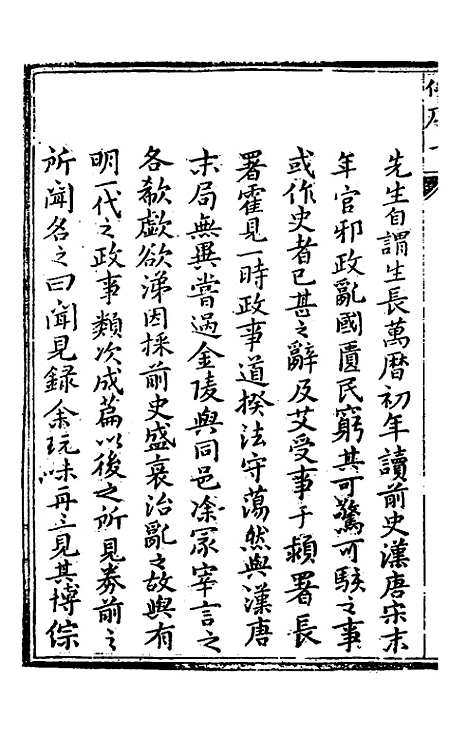 先生自謂生長萬曆初年讀前史漢唐宋末
年官邪政亂國匱民窮其可驚可駭之事
或作史者已甚之辭及艾受事于頖署長
署霍見一時政事道揆法守蕩然與漢唐
末局無異嘗過金陵與同邑凃冡宰言之
各欷歔欲涕因採前史盛衰治亂之故與有
明一代之政事類次成篇以後之所見券前之
所聞名之曰聞見錄余玩味再三見其博綜